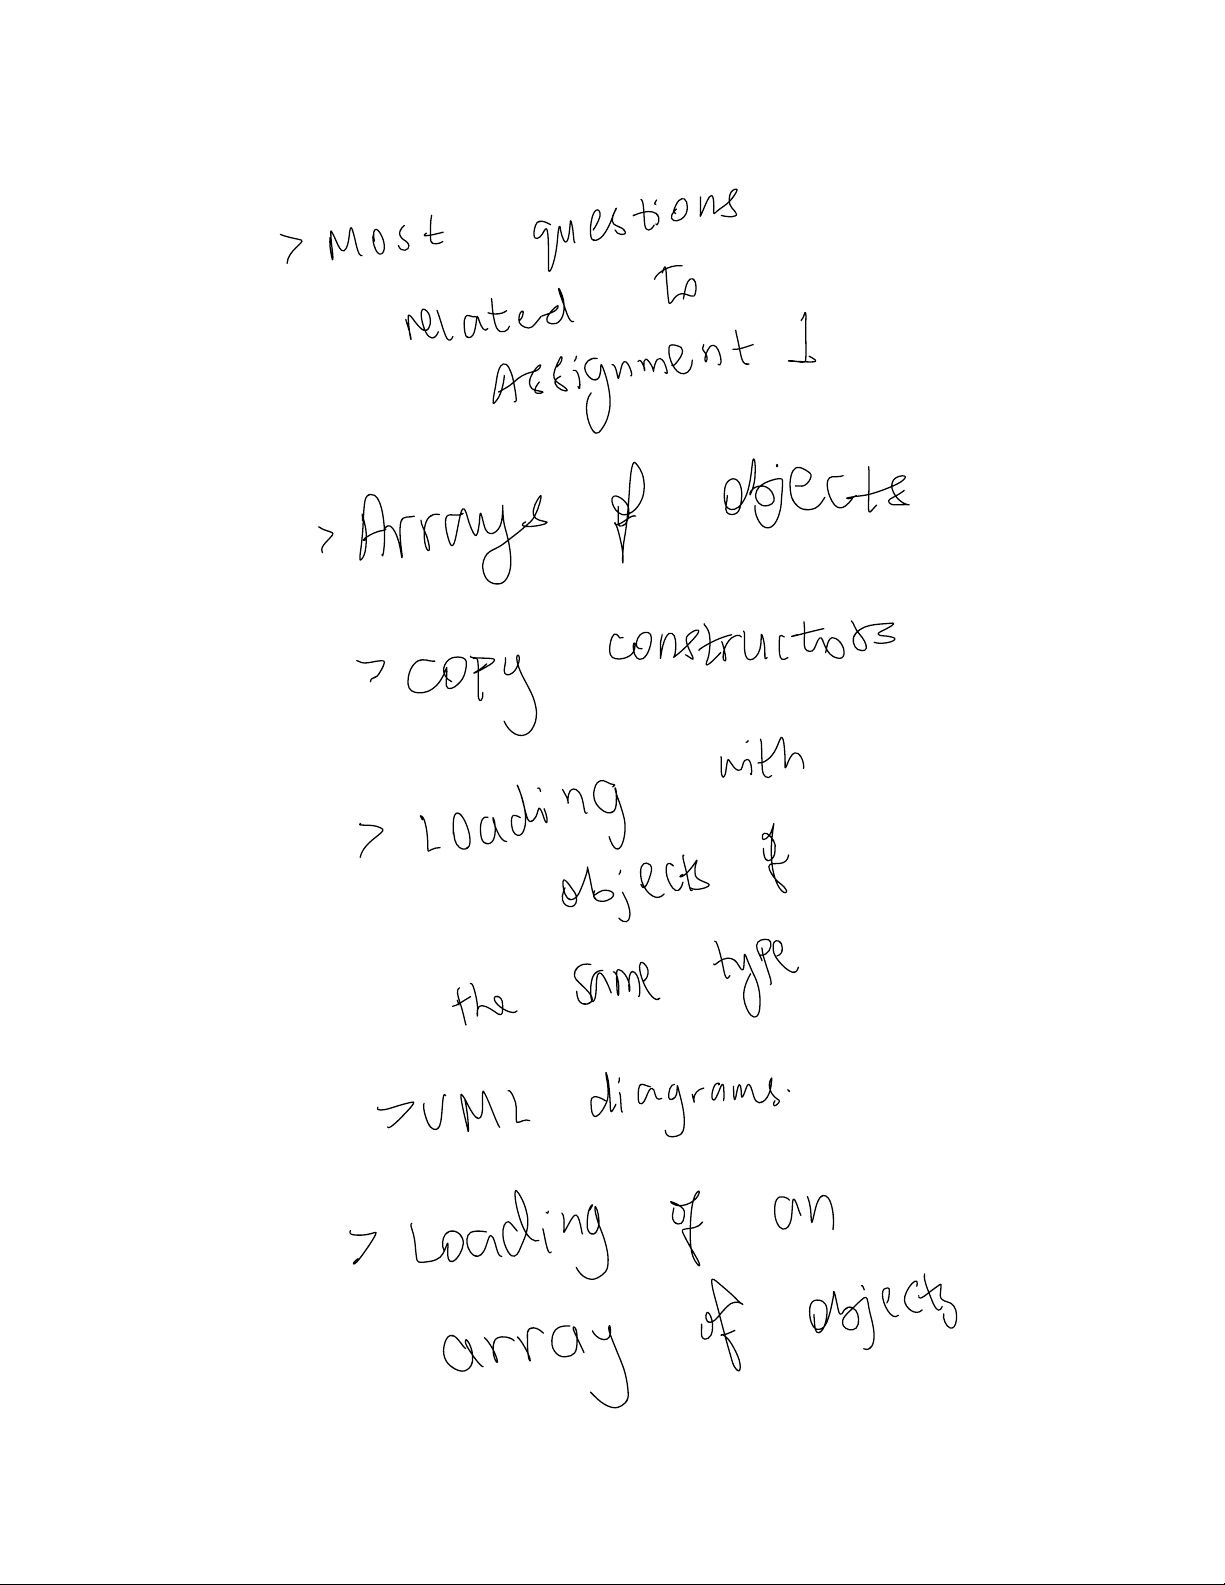 > Most questions
related to
Assignment 1
> Arrays of objects
> copy constructors
> Loading with
objects of
the same type
> UML diagrams.
> Loading of an
array of objects